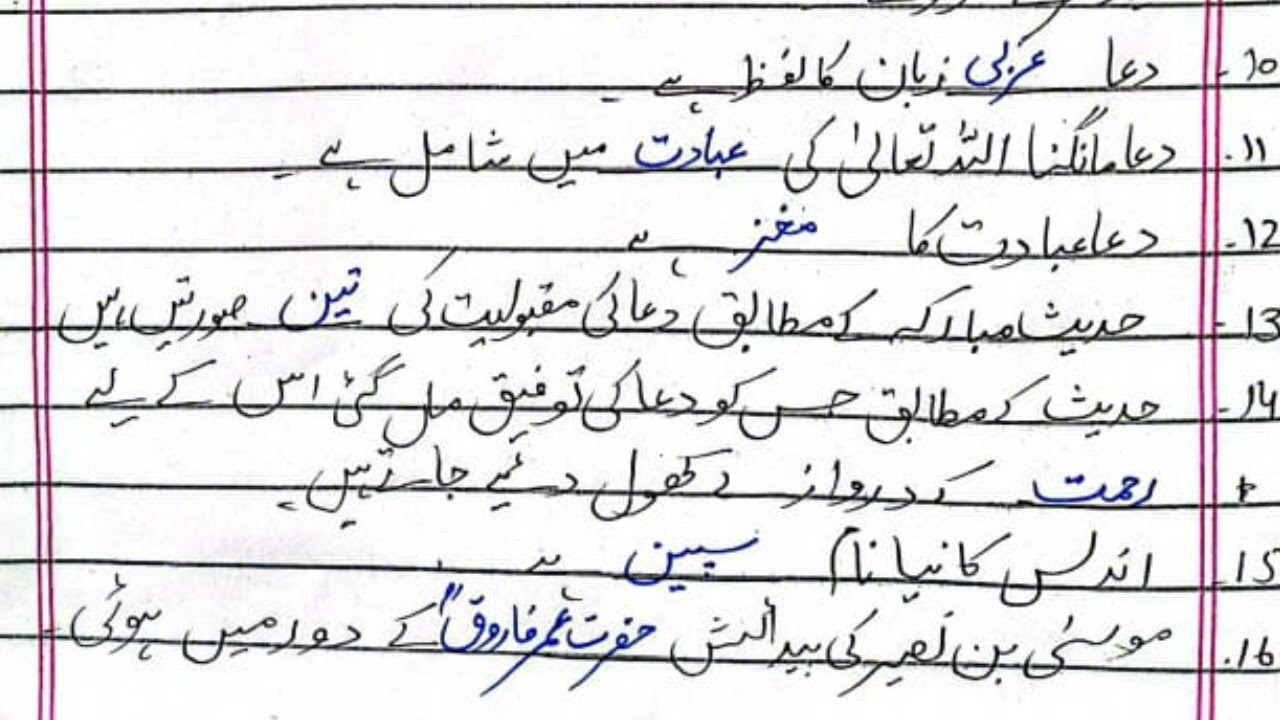 10۔ دعا عربی زبان کا لفظ ہے ۔
11۔ دعا مانگنا اللہ تعالیٰ کی عبادت میں شامل ہے ۔
12۔ دعا عبادت کا مغز ہے
13۔ حدیث مبارکہ کے مطابق دعا کی مقبولیت کی تین صورتیں ہیں
14۔ حدیث کے مطابق جس کو دعا کی توفیق مل گئی اس کے لیے
رحمت کے دروازے کھول دئیے جاتے ہیں ۔
15۔ اندلس کا نیا نام سپین ہے ۔
16۔ موسیٰ بن نصیر کی پیدائش حضرت عمر فاروقؓ کے دور میں ہوئی